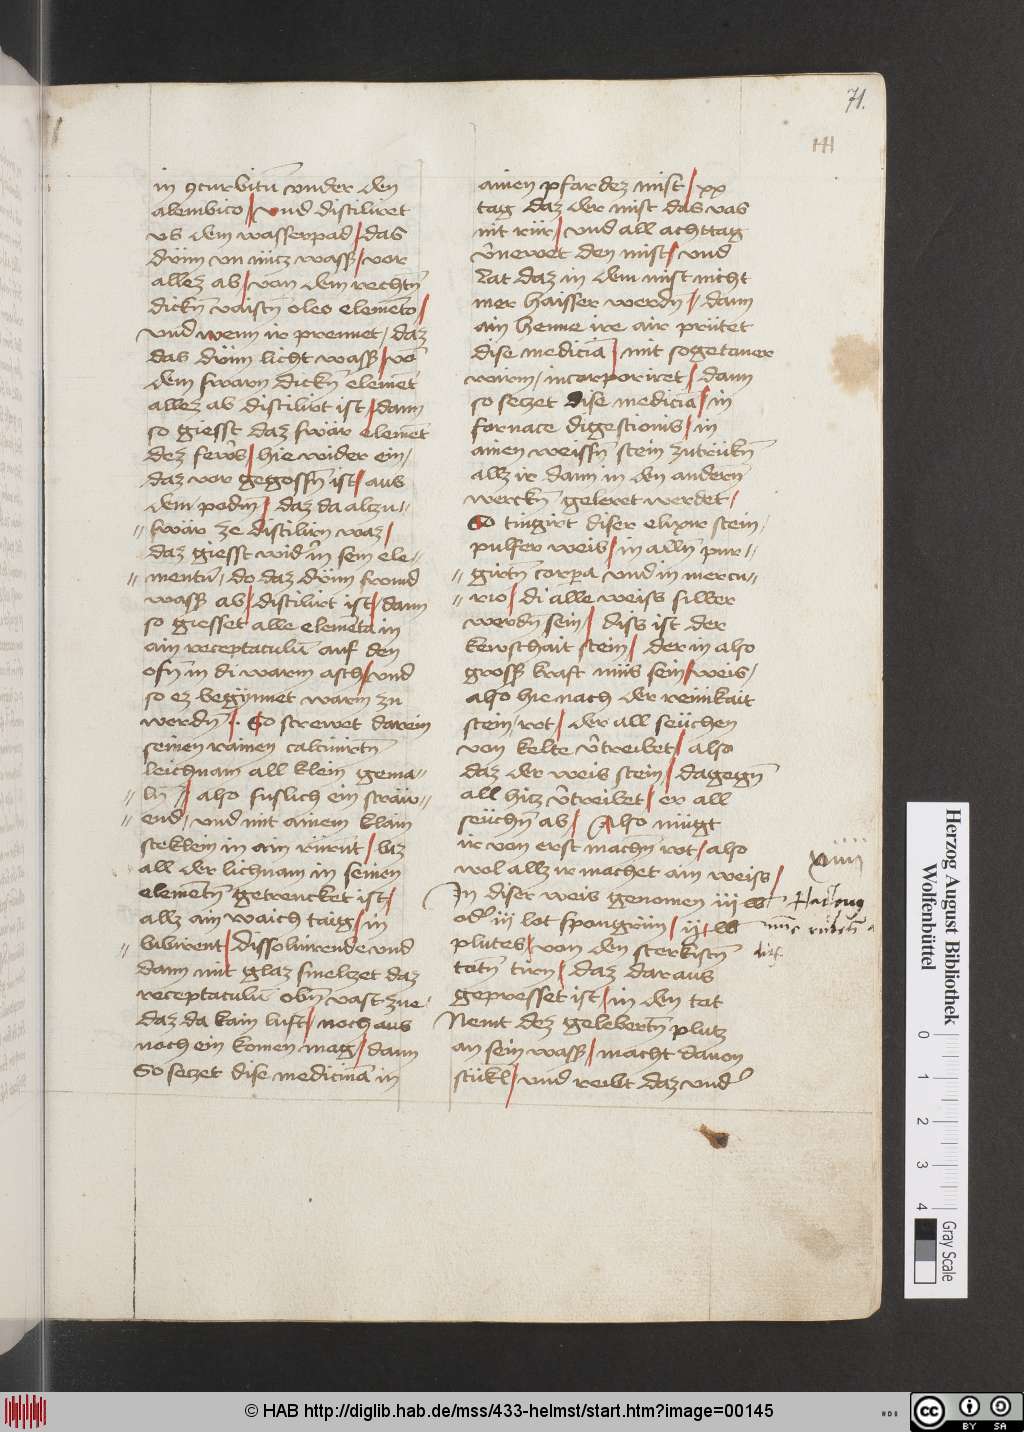 71.
in ꝯcurbitū vnder den
alembico / vnd distiliret
vs dem wasserpad / das
dv̈nn vn nücz wasß / vor
allez ab / von dem rechtn̄
dickn̄ vaistn̄ oleo elemēto /
vnd wenn ir prennet / daz
das dv̈nn licht wasß / vō
dem swarn dickn̄ elemēt
allez ab distilirt ist / dann
so giesst daz swär elemēt
dez fewrs / hie wider ein /
daz vor gegossn̄ ist / aus
dem podm̄ / daz da alczu //
// swär ze distilirn waz /
daz giesst wid in sein ele //
// mentū / do daz dv̈nn fromd
wasß ab / distilirt ist / dann
so giesset alle elemēta in
ain receptaculū auf den
ofn̄ in di warm asch / vnd
so ez begÿnnet warm zu
werdn̄ / So strewet darein
seinen rainen calcinirtn̄
leichnam all klein gema //
// ln̄ / also suslich ein sträw //
// end / vnd mit ainem klain
steklein in ain rürnt / biz
all der lichnam in seinen
elemētn̄ getrencket ist /
allz ain waich taig / in
// bibirent / dissoluirende vnd
dann mit glaz smelczet daz
receptaculū obn̄ vast zue /
daz da kain luft / noch aus
noch ein komen mag / dann
So seczet dise medicinā in
ainen pfardez mist / xx
tag daz der mist das vas
nit rür / vnd all achttag
v̄newet den mist / vnd
Lat daz in dem mist nicht
mer haisser werdn̄ / dann
ain henne ire air prütet
dise mediciā / mit sogetaner
wirm / incorporiret / dann
so seczet dise mediciā / in
fornace digestionis / in
ainen weissn̄ stein zutrükn̄
allz ir dann in den andern̄
werckn̄ geleret werdet /
So tingirt diser elixir stein /
pulfer weis / in alln̄ pur //
// girtn̄ corpora vnd in mercu //
// rio / di alle weiss silber
werdn̄ sein / diss ist der
kewschait stein / der in also
grosß kraft müs sein / weis /
also hie nach der reinikait
stein / rot / der all seüchen
von kelte v̄treibet / also
daz der weis stein / dagegn̄
all hicz v̄treibet / er all
seüchn̄ ab / Also mügt
ir von erst machn̄ rot / also
wol allz ir machet ain weiss /
In diser weis genomen iij lb
od iij lot spongrün / ij lb
plutes / von den sterkistn̄
totn̄ turn / daz daraus
gepresset ist / in den tot
Nemt dez gelebertn̄ plutz
an sein wasß / macht dauon
stükl / vnd reibt daz vnd
Herzog August Bibliothek
Wolfenbüttel
0 1 2 3 4
Gray Scale
© HAB http://diglib.hab.de/mss/433-helmst/start.htm?image=00145
cc BY SA